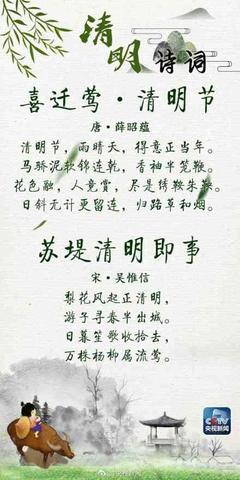 清明
诗词
喜迁莺·清明节
唐·薛昭蕴
清明节，雨晴天，得意正当年。
马骄泥软锦连乾，香袖半笼鞭。
花色融，人竟赏，尽是绣鞍朱鞅。
日斜无计更留连，归路草和烟。
苏堤清明即事
宋·吴惟信
梨花风起正清明，
游子寻春半出城。
日暮笙歌收拾去，
万株杨柳属流莺。
CCTV
央视新闻